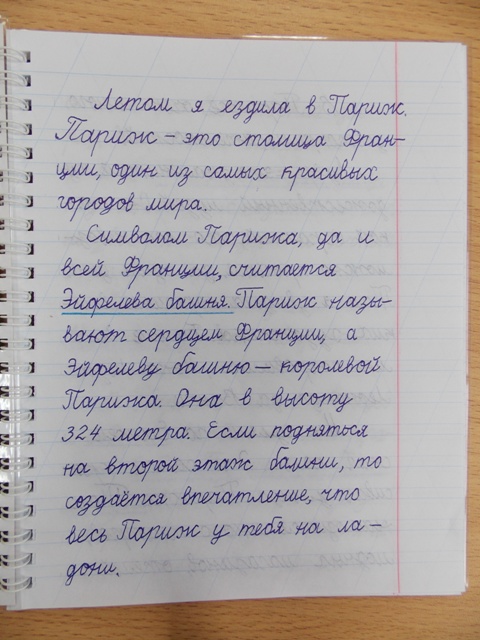 Летом я ездила в Париж.
Париж – это столица Фран-
ции, один из самых красивых
городов мира.
Символом Парижа, да и
всей Франции, считается
Эйфелева башня. Париж назы-
вают сердцем Франции, а
Эйфелеву башню – королевой
Парижа. Она в высоту
324 метра. Если подняться
на второй этаж башни, то
создаётся впечатление, что
весь Париж у тебя на ла-
дони.